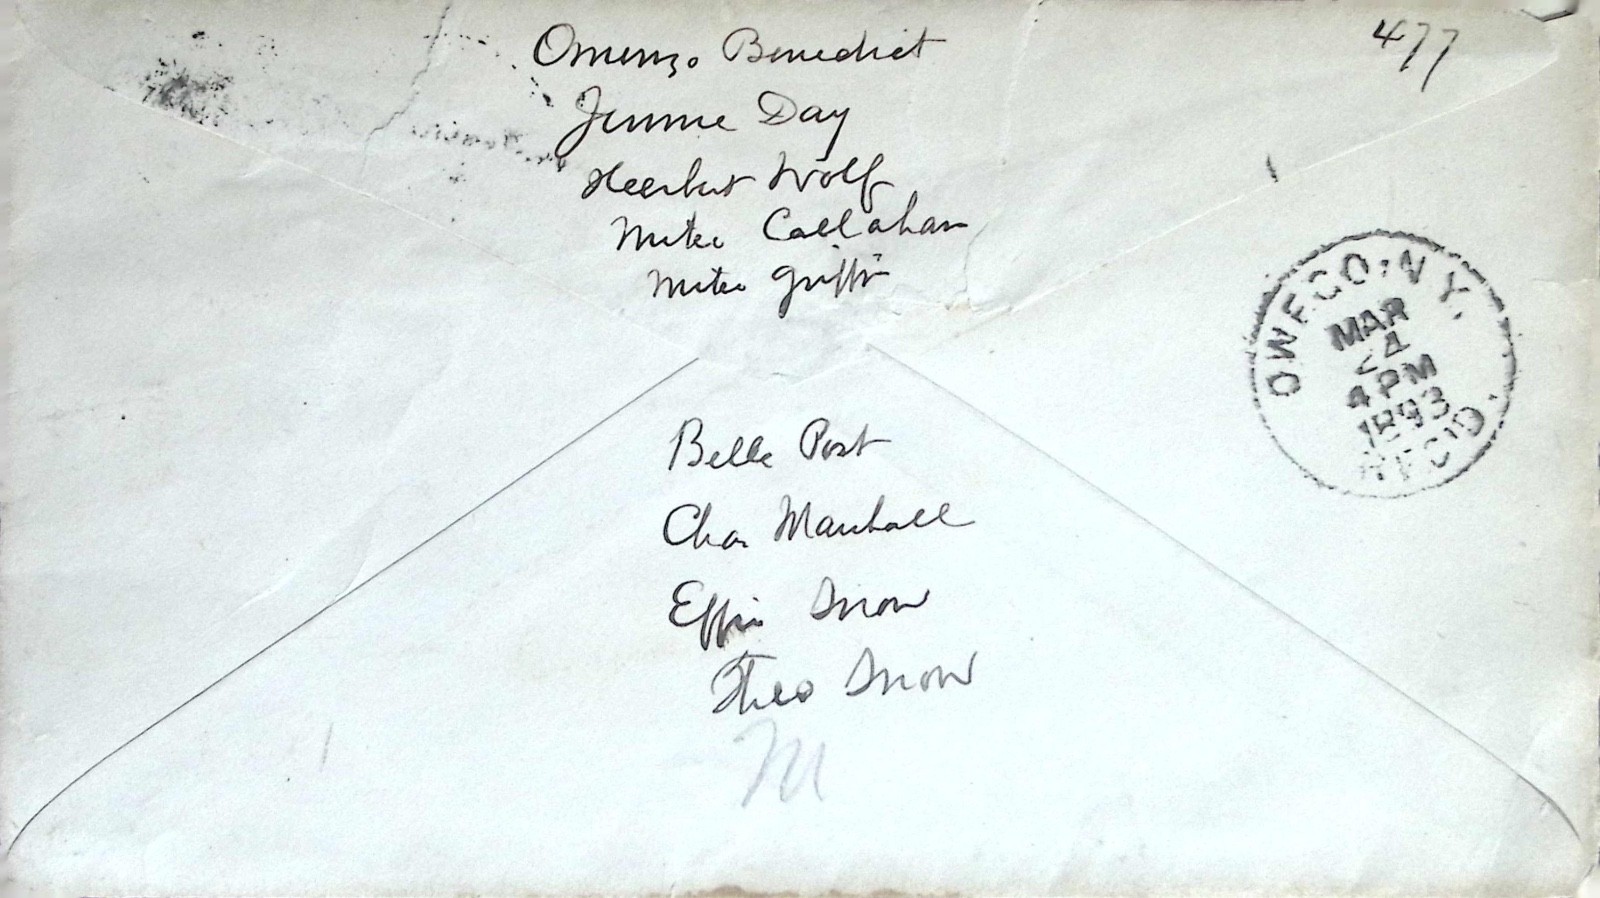 477
Omenzo Benedict
Jennie Day
Herbert Wolf
Mike Callahan
Mike Griffin
OWEGO, N.Y.
MAR
24
4 PM
1893
REC'D.
Belle Post
Chas Marshall
Effie Snow
Theo Snow
M